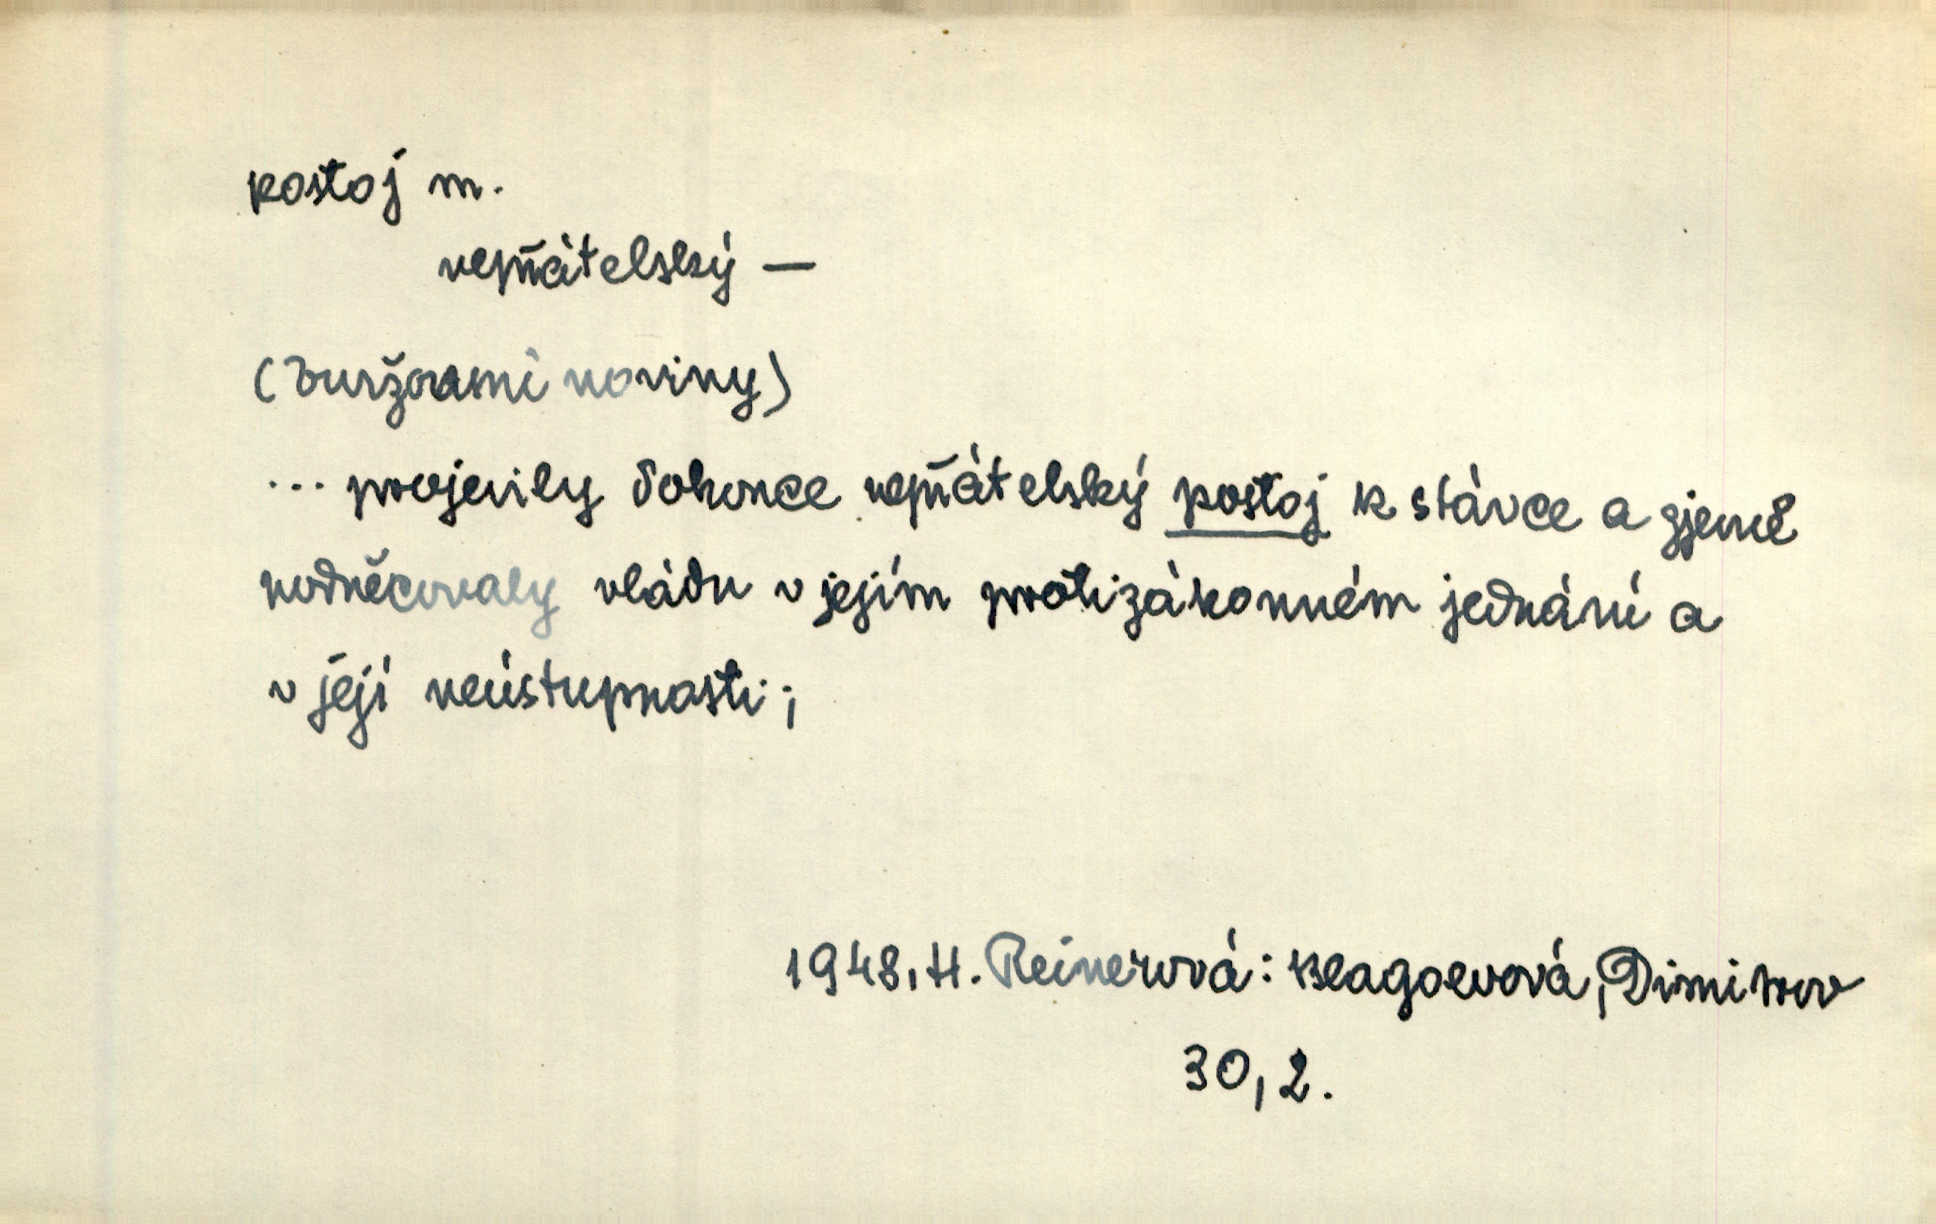 postoj m.
nepřátelský —
(buržoasní noviny)
... projevily dokonce nepřátelský postoj k stávce a zjevně
podněcovaly vládu v jejím protizákonném jednání a
v její neústupnosti;
1948, H. Reinerová: Blagoevová, Dimitrov
30, 2.